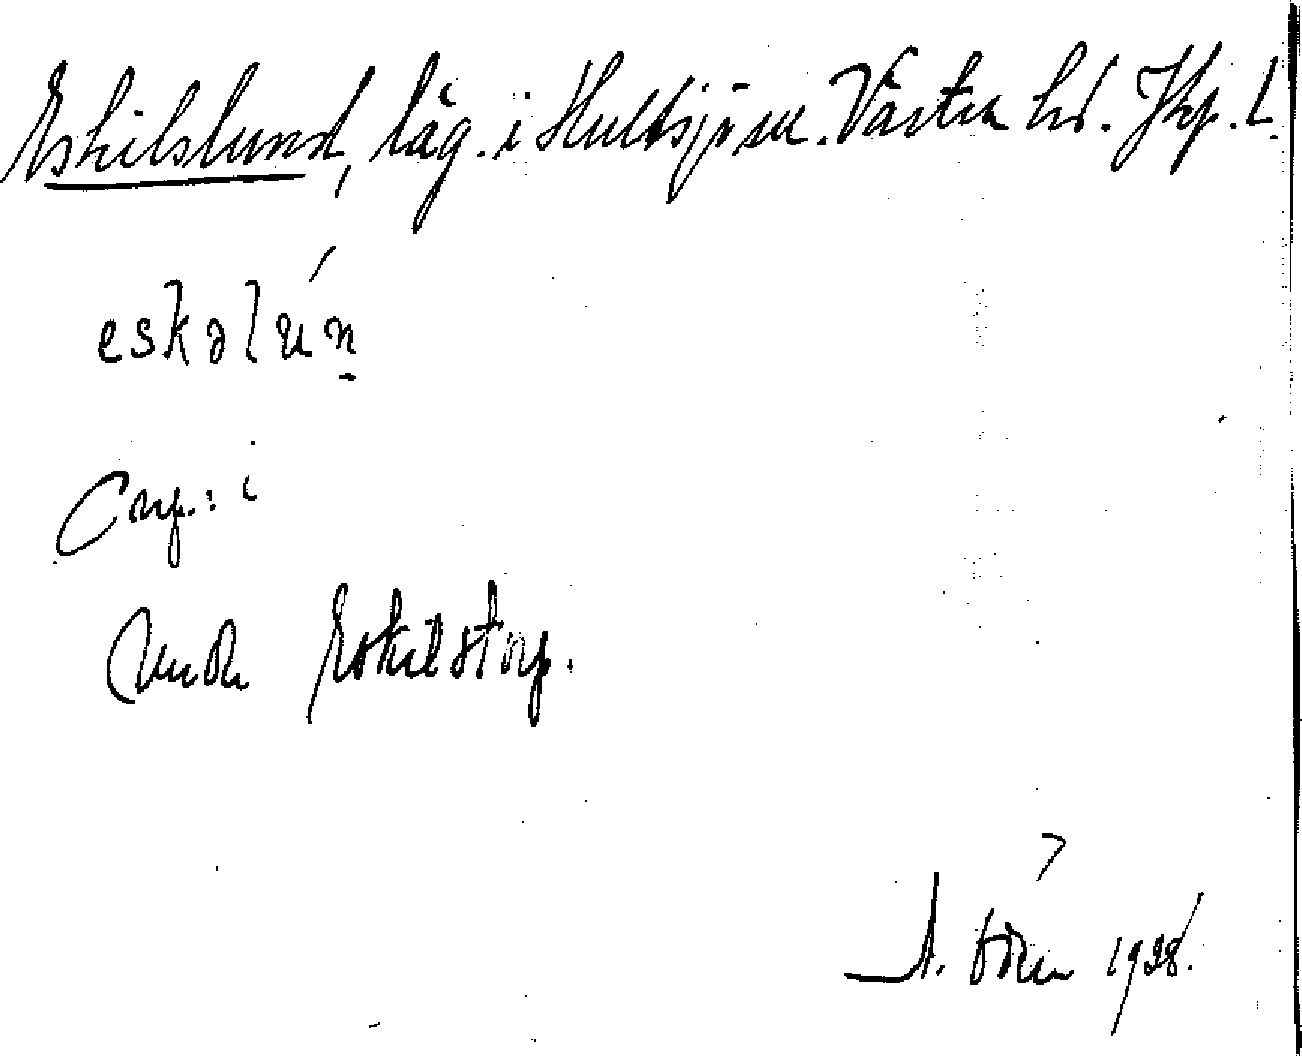 Eskilslund, läg. i Hultsjö sn. Västra hd. Jkp. L.
eskəlún
Prep.: i
Under Eskilstorp.
1928.